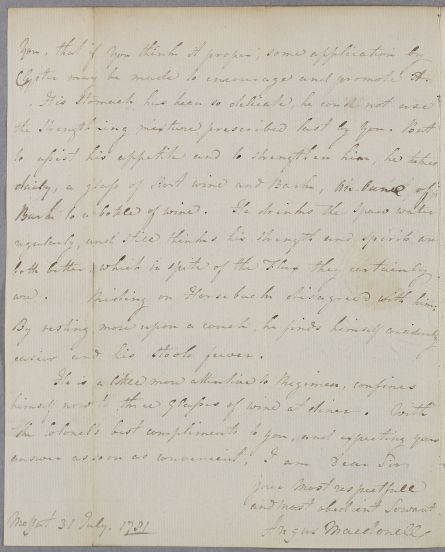 You, that if You think it proper, some application by
Clyster may be made to encourage and promote it.
His Stomach has been so delicate, he could not use
the Strengthening mixture prescribed last by You. But
to assist his appetite and to strengthen him, he takes
daily, a glass of Port wine and Bark, of
Bark to a bottle of wine. He drinks the Spaw water
regularly, and still thinks his strength and spirits are
both better, which in spite of the Flux they certainly
are. Riding on Horseback disagreed with him.
By resting more upon a couch, he finds himself considerably
easier and his stools fewer.
He is a little more attentive to Regimen, confines
himself now to three Glasses of wine at diner. With
the Colonel's best compliments to you, and expecting your
answer as soon as convenient, I am Dear Sir
your most respectfull
and most obedient Servant
Angus Macdonell
Moffat 31 July. 1781